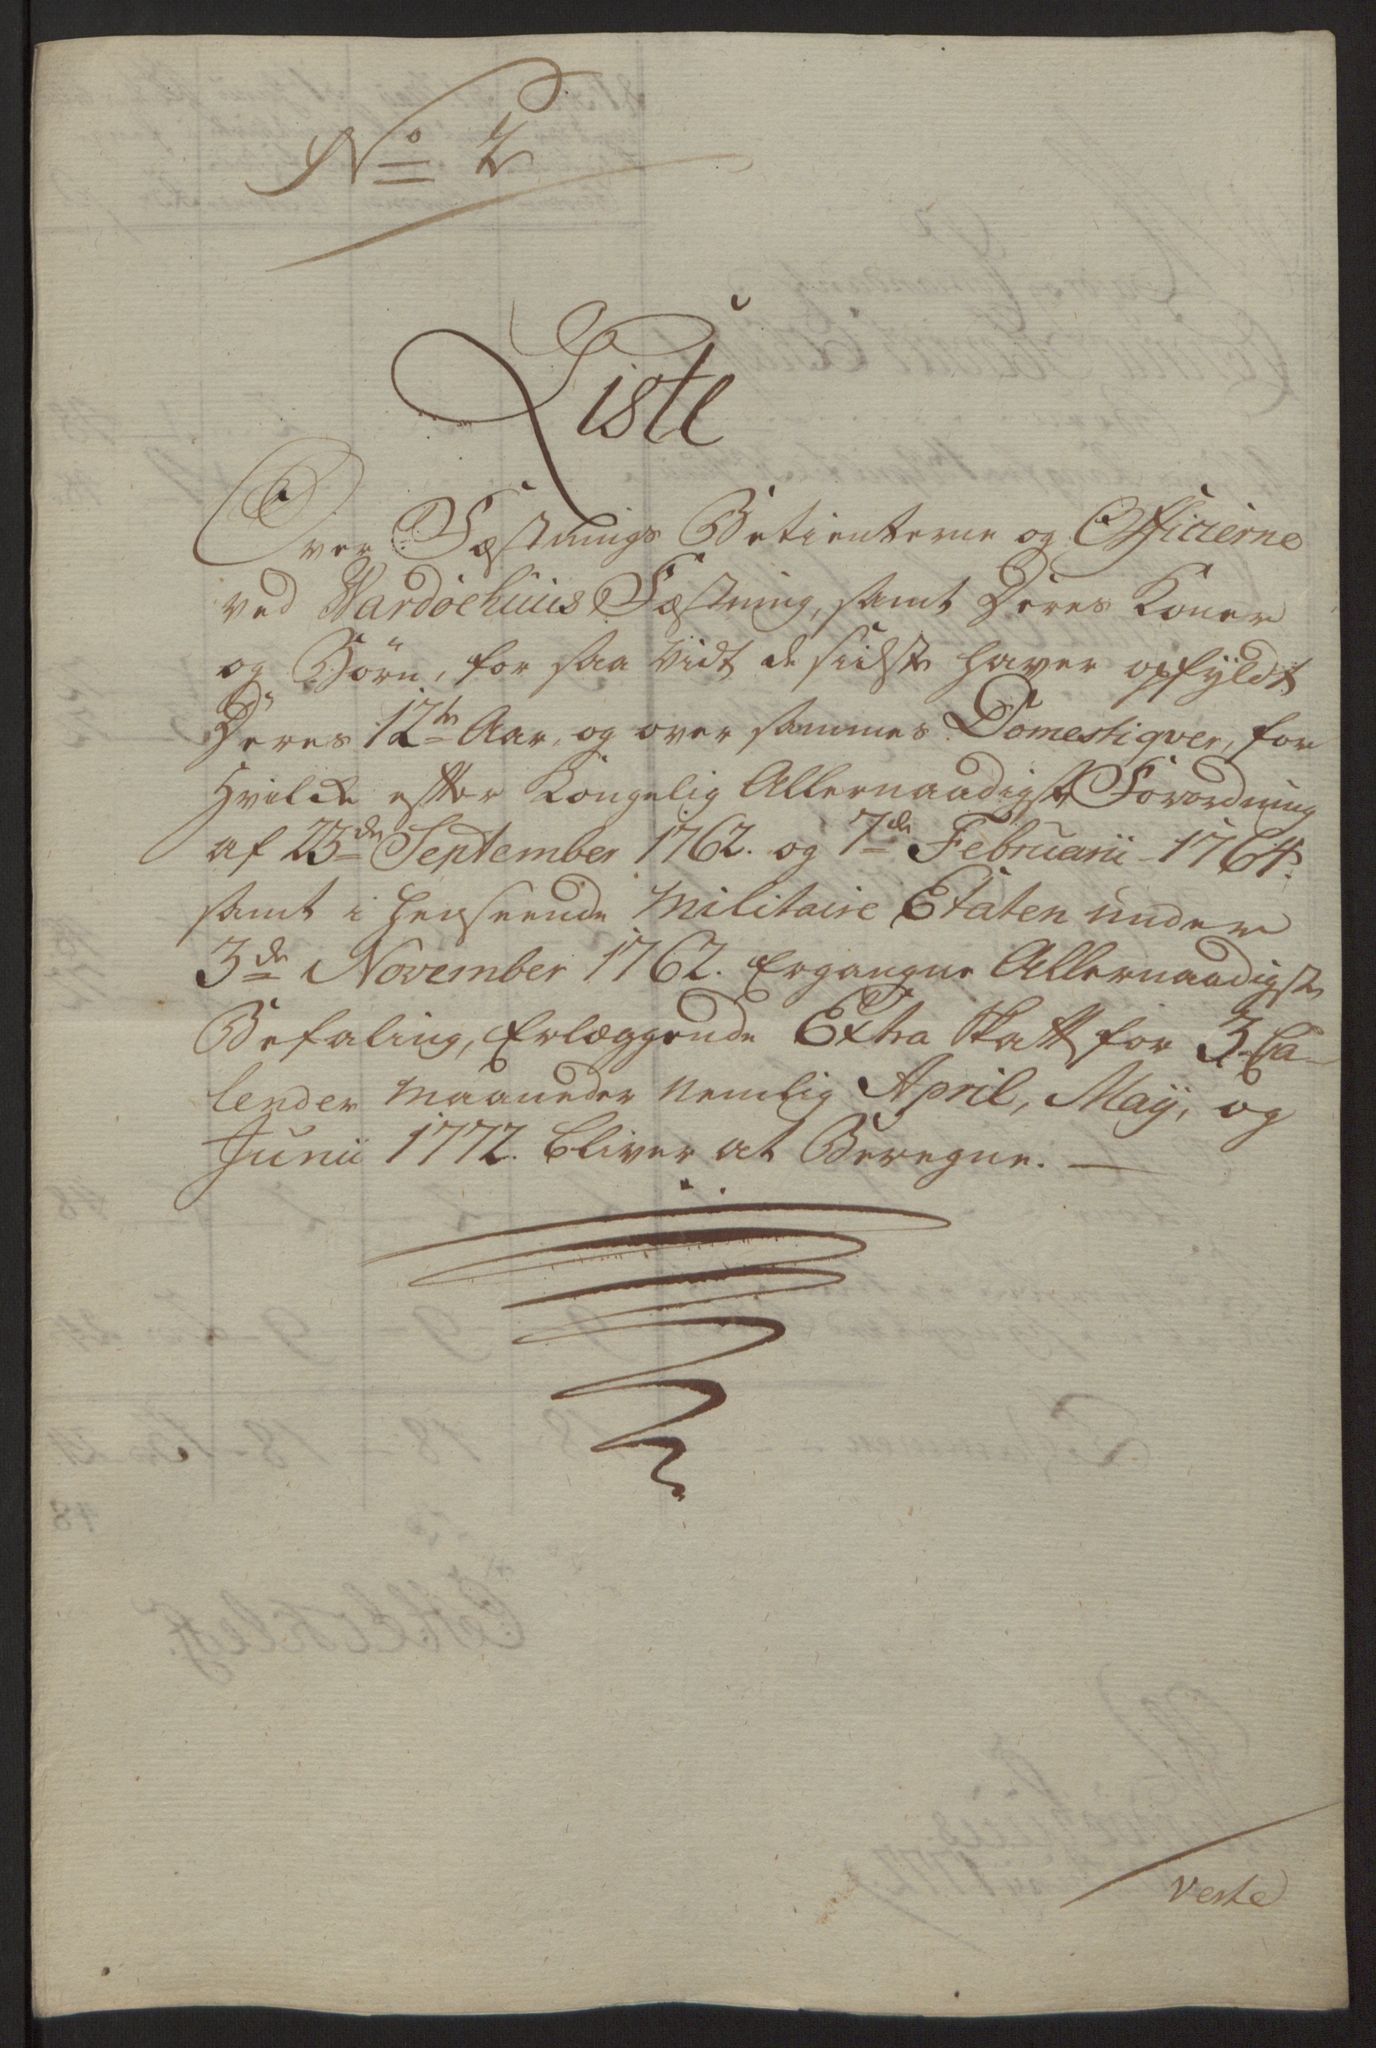 No 2
Liste
Over Fæstnings Betienterne og Officierne
ved Wardoehuus Fæstning, samt Deres Koner
og Börn, for saa vidt de sidste haver opfyldt
Deres 12te Aar, og over sammes Domestiqver, for
Hvilcke efter Kongelig Allernaadigste Forordning
af 23de September 1762. og 7de Februarii 1764.
samt i henseende Militaire Etaten under
3de November 1762. Ergangne Allernaadigste
Befaling, Erlæggende Extra Skatt for 3 Ca-
lender Maaneder Nemlig April, Maÿ, og
Junii 1772. bliver at Beregne. —
Verte